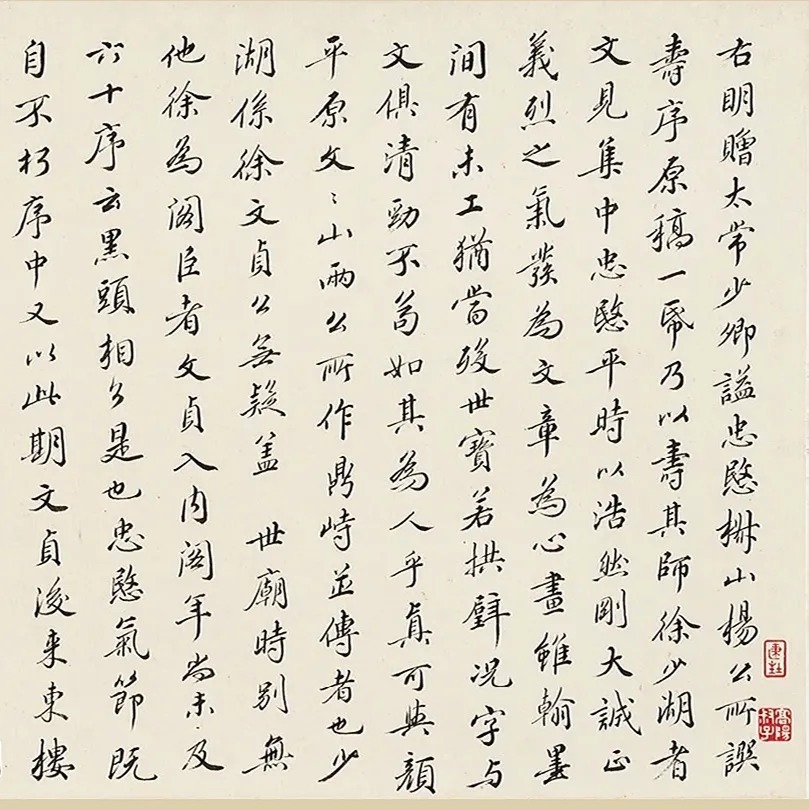 右明贈太常少卿謚忠愍椒山楊公所譔
壽序原稿一帋乃以壽其師徐少湖者
文見集中忠愍平時以浩然剛大誠正
義烈之氣發為文章為心畫雖翰墨
間有未工猶當後世寶若拱璧況字与
文俱清勁不苟如其為人乎真可與顏
平原文〻山兩公所作鼎峙並傳者也少
湖係徐文貞公無疑蓋 世廟時別無
他徐為閣臣者文貞入內閣年尚未及
六十序云黑頭相公是也忠愍氣節既
自不朽序中又以此期文貞後来東樓
高陽